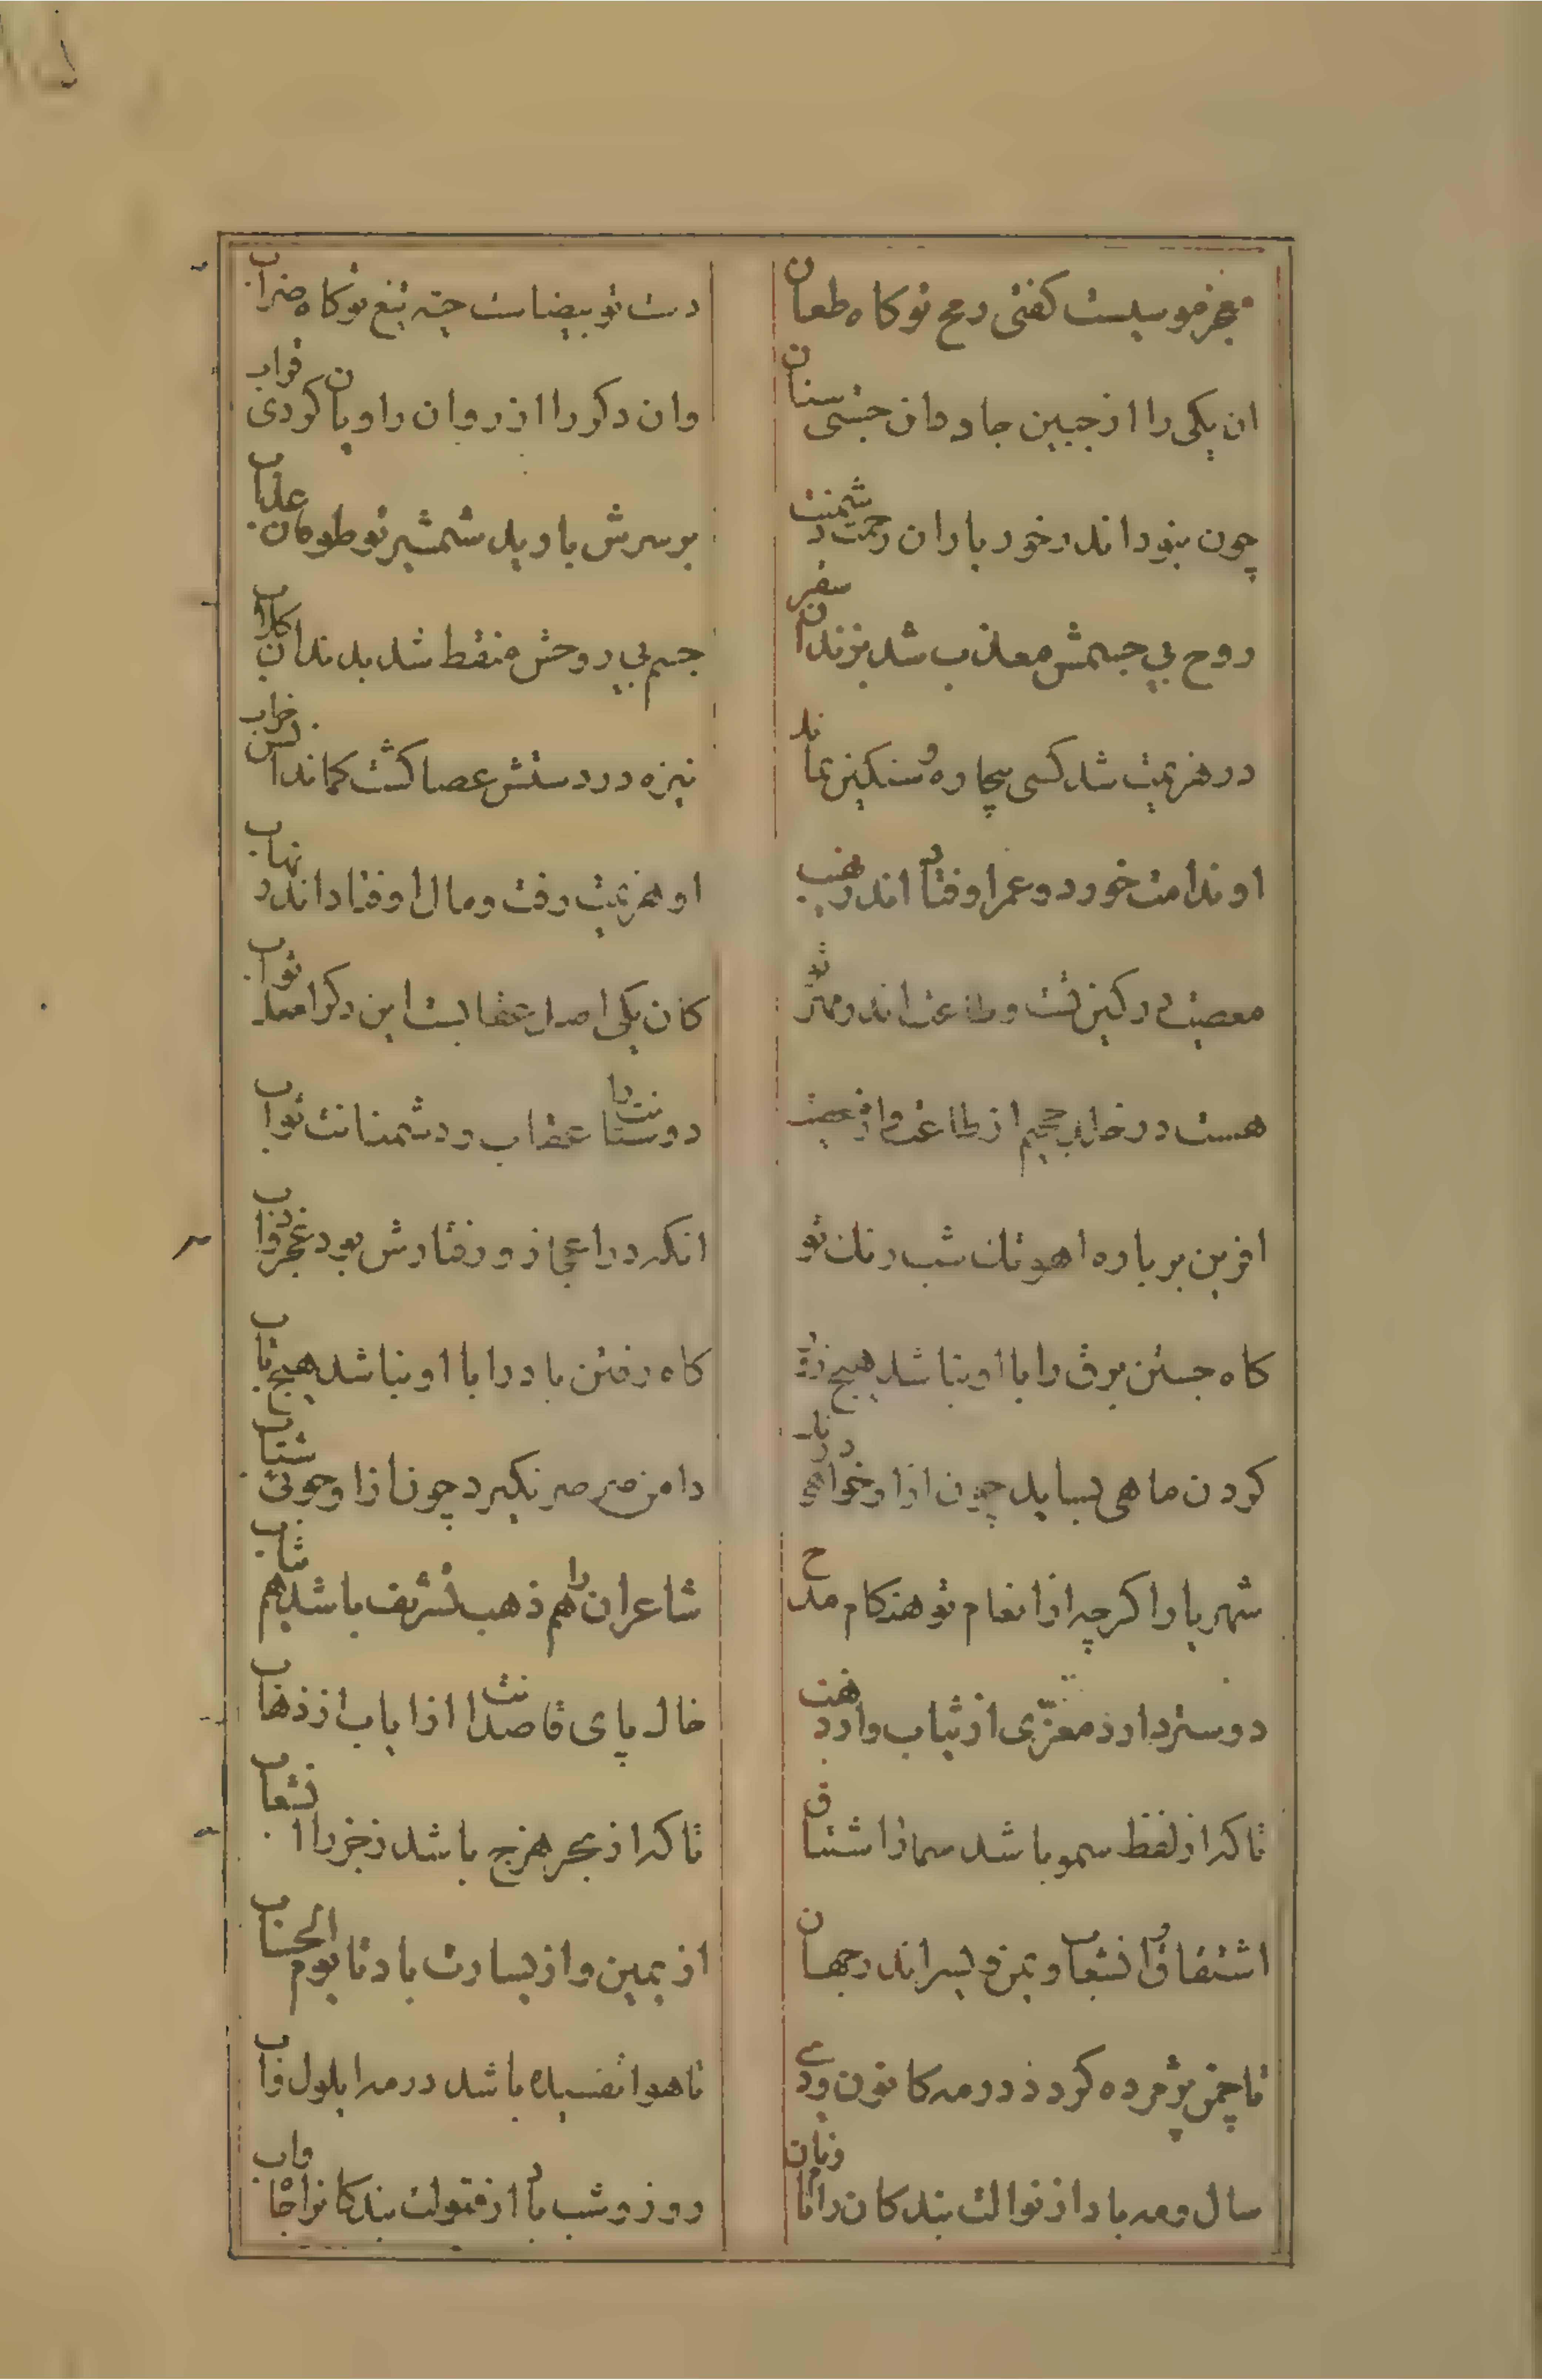 معجز موسیست کفتی رمح تو کاه طعان
دست تو بیضاست جته تیغ تو کاه ضراب
ان یکی را از جبین جاودان جستی سنان
وان دکر را از روان راویان کردی قراب
چون نبود اندر خور باران رحمت دشمنت
بر سرش بارید شمشیر تو طوفان عذاب
روح بی جسمش معذب شد بزندان سقر
جسم بی روحش منقط شد بدندان کلاب
در هزیمت شد کسی بیچاره و سنکین نماند
نیزه در دستش عصا کشت کماندانش خراب
او ندامت خورد و عمر او فتاد اندر نهیب
او هزیمت رفت و مال او فتاد اندر نهاب
معصیت در کین تست و طاعت اندر مهر تو
کان یکی اصل عقابست این دکر اصل ثواب
هست در خلد جحیم از طاعت و از معصیت
دوستانت را عقاب و دشمنانت ثواب
افرین بر باره اهوتک شب رنک تو
انکه در اعجاز و رفتارش بود عجز دواب
کاه جستن برق را با او نباشد هیچ زور
کاه رفتن باد را با او نباشد هیچ تاب
کردن ماهی بساید چون ازاو خواهی درنک
دامن صرصر نکیرد چون ازاو جوئی شتاب
شهریارا کرچه از انعام تو هنکام مدح
شاعران را هم ذهب تشریف باشد هم ثیاب
دوستر دارد معزّی از ثیاب و از ذهبت
خاک پای قاصدانت را از ایاب از ذهاب
تا که از لفظ سمو باشد سما را اشتقاق
تا که از بحر هزج باشد زخر را انشعاب
اشتقاق و انشعاب و یمن و یسر اندر جهان
از یمین و از یسارت باد تا یوم الحساب
تا چمن پژمرده کردد در مه کانون و دی
تا هوا تفسیده باشد در مه ایلول واب
سال و مه باد از نوالت بندکان را نام و نان
روز و شب باد از قبولت بندکانرا جاه واب